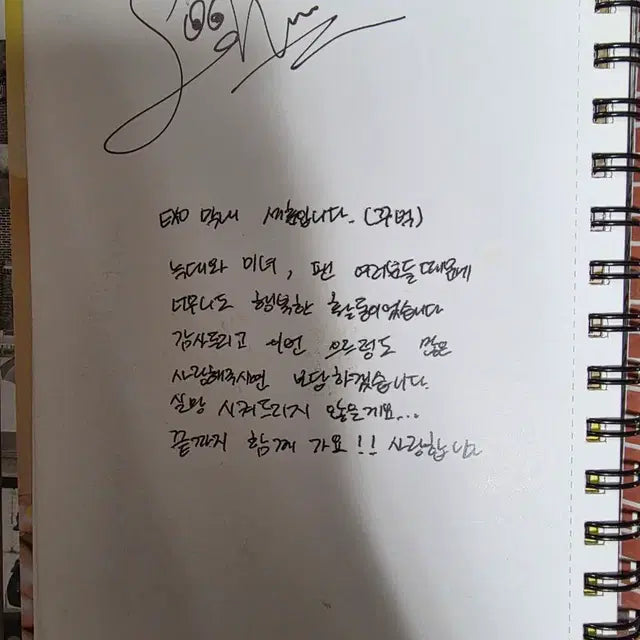 EXO 막내 세훈입니다. (꾸벅)
늑대와 미녀, 팬 여러분들 때문에
너무나도 행복한 순간들이었습니다
감사드리고 이번 으르렁도 많은
사랑해주시면 보답하겠습니다.
실망 시켜드리지 않을게요...
끝까지 함께 가요!! 사랑합니다